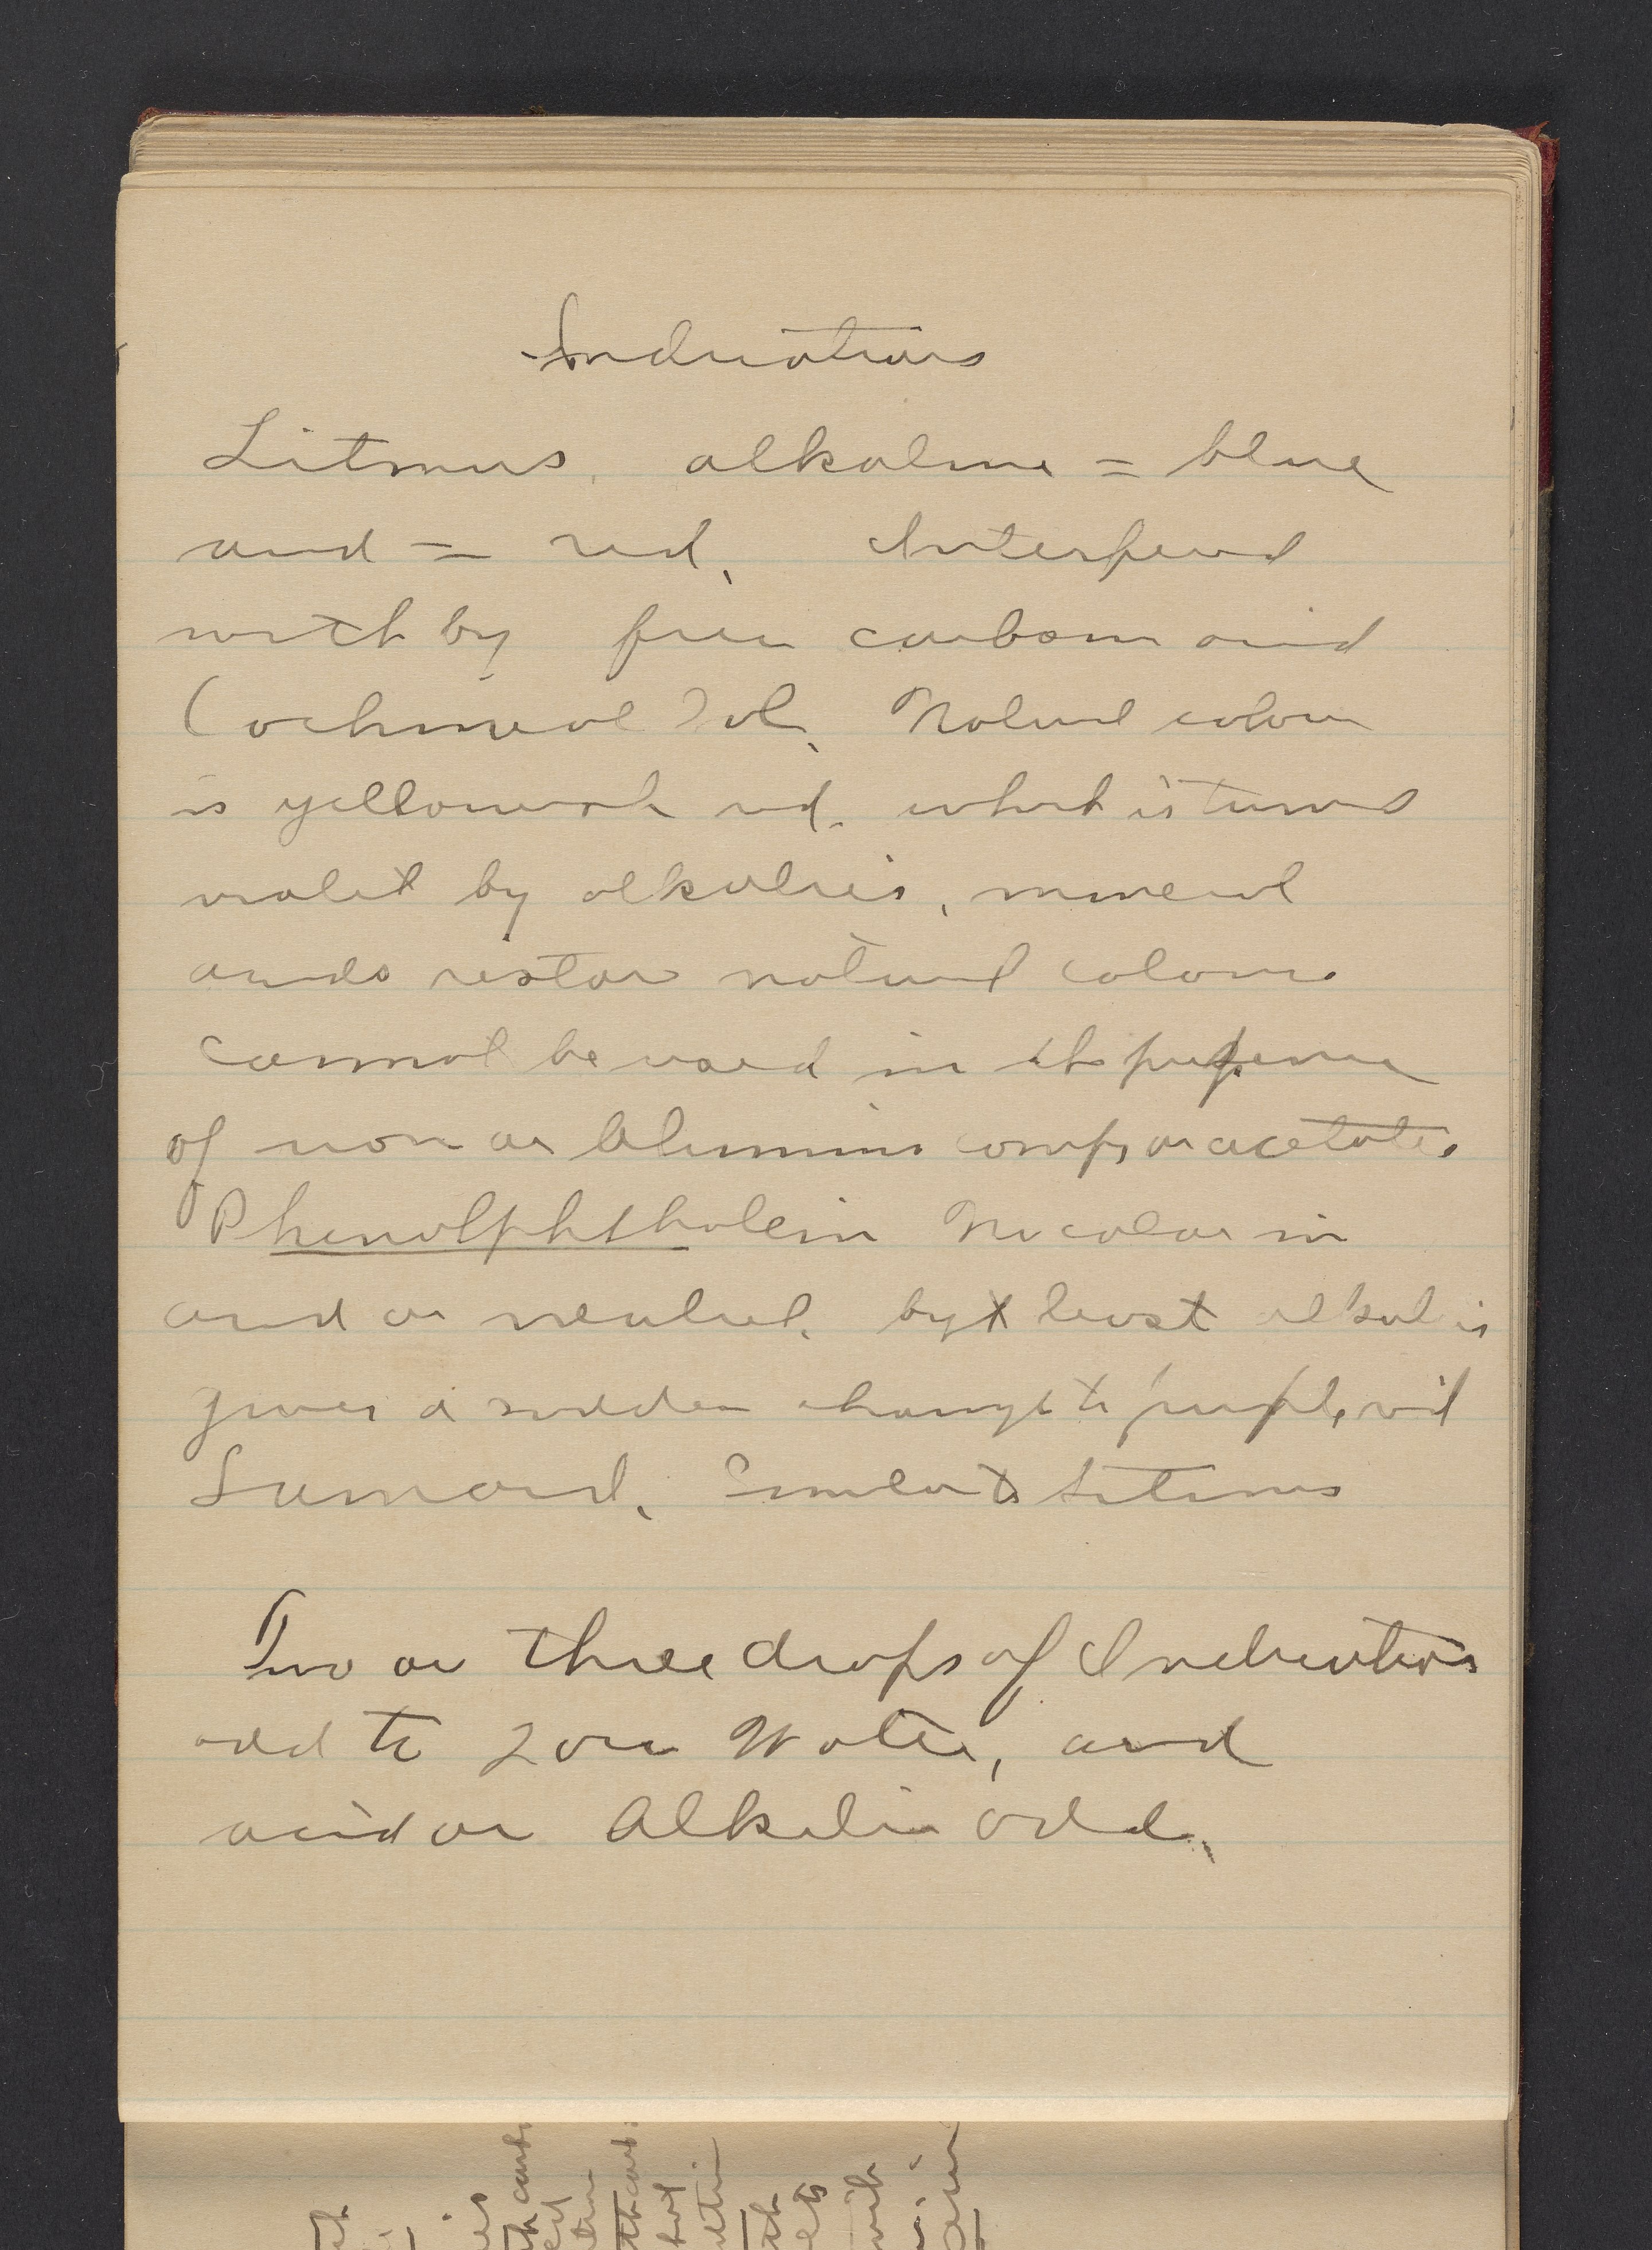 Indicators
Litmus, alkaline = blue
acid = red. Interfered
with by free carbonic acid
Cochineal Sol. Natural colour
is yellowish red. which is turned
violet by alkalies, mineral
acids restore natural colour.
cannot be used in the presence
of iron or alumina comps or acetates
Phenolphthalein No color in
acid or neutral. by least alkali
gives a sudden change to purple red
Lacmoid. Similar to Litmus
Two or three drops of Indicators
add to 2 oz Water, and
acid or Alkali add.